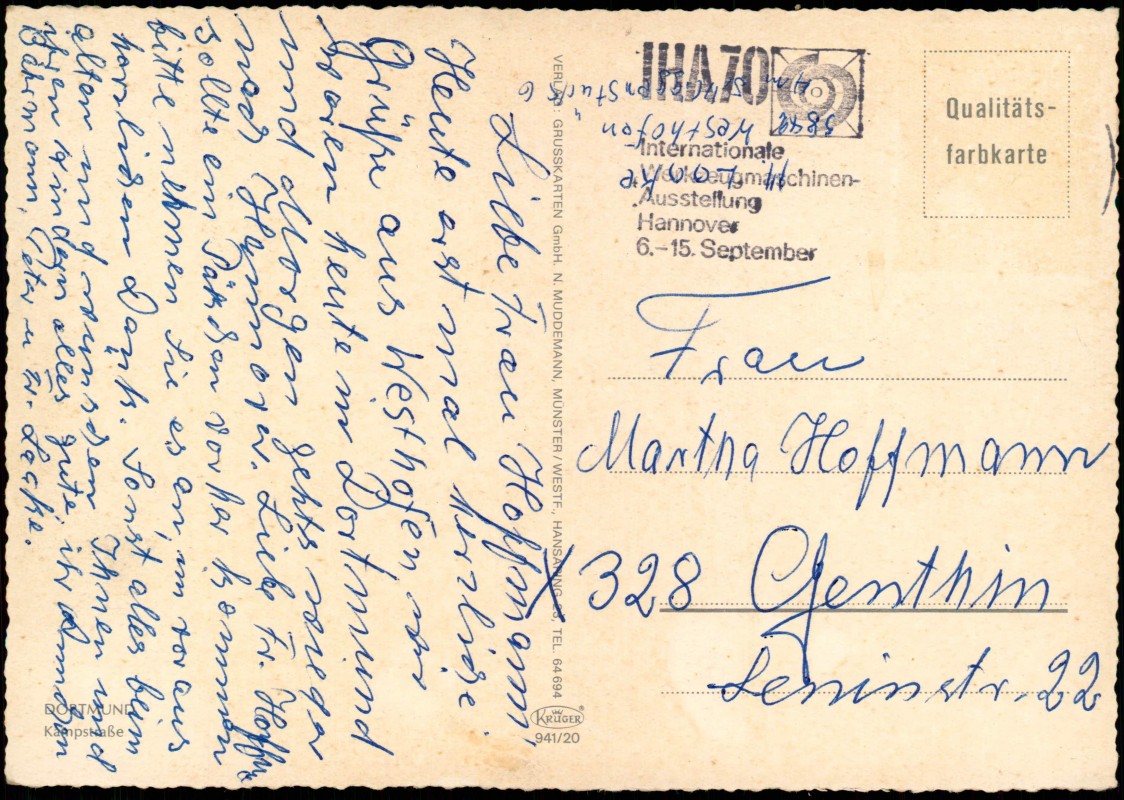 Liebe Frau Hoffmann,
Heute erst mal herzliche
Grüße aus Westhofen wir
waren heute in Dortmund
und Morgen gehts wieder
nach Hannover. Liebe Fr. Hoffm
sollte ein Pätchen vorher kommen
bitte nehmen Sie es an, im voraus
herzlichen Dank. Sonst alles beim
alten und wünschen Ihnen und
Ihren Kindern alles gute, ihr
Bärmann, Peter u. Fr. Lacke.
DORTMUND
Kampstraße
VERLAG: GRUSSKARTEN GmbH. N. MUDDEMANN, MÜNSTER/WESTF., HANSARING 63, TEL. 64694
KRÜGER
941/20
IHA 70
Internationale
Werkzeugmaschinen-
Ausstellung
Hannover
6.–15. September
Westhofen
5842
Am
Qualitäts-
farbkarte
Frau
Martha Hoffmann
X 328 Genthin
Leninstr. 22